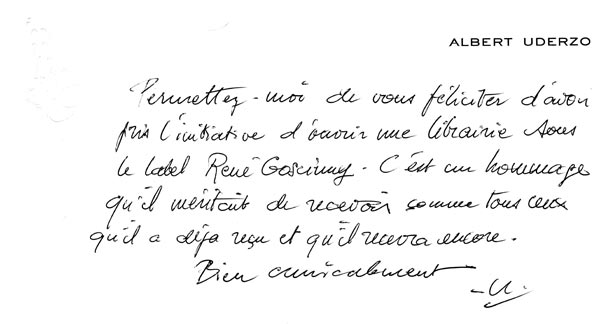 ALBERT UDERZO
Permettez-moi de vous féliciter d'avoir
pris l'initiative d'ouvrir une librairie sous
le label René Goscinny. C'est un hommage
qu'il méritait de recevoir comme tous ceux
qu'il a déjà reçu et qu'il recevra encore.
Bien amicalement
-U.